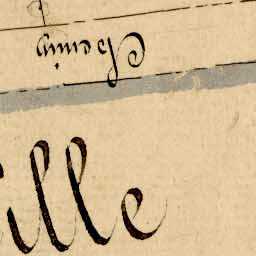 Chemin
ille